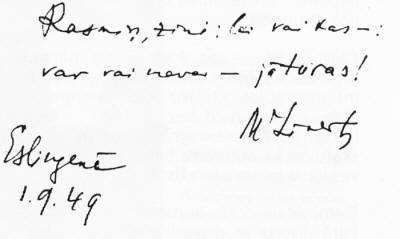 Rasmiņ, zini: lai vai kas –:
var vai nevar – jāturas!
M Zīverts
Eslingenē
1.9.49